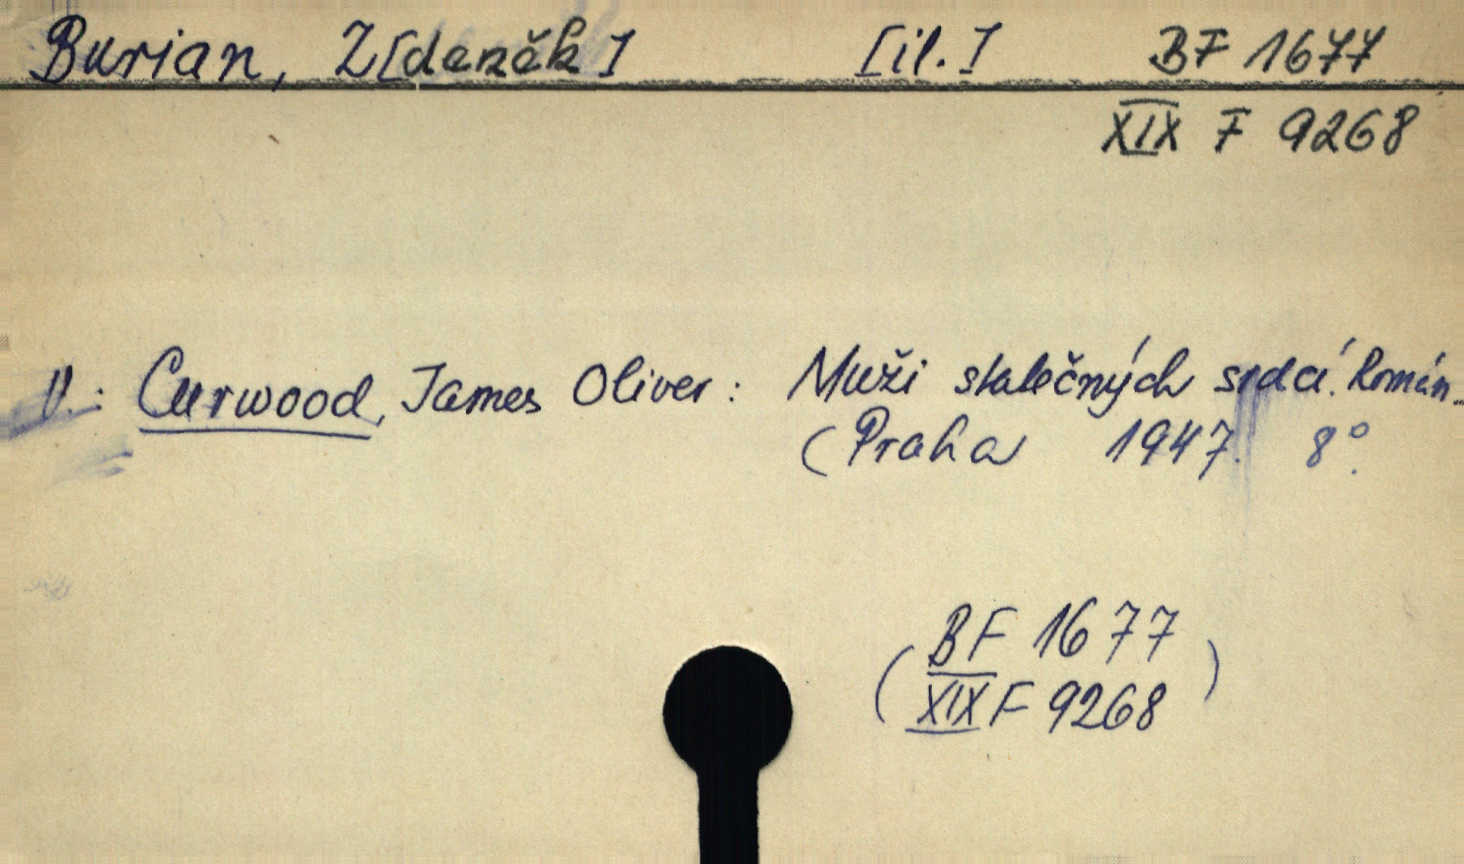 Burian, Z[deněk] [il.] BF 1677
XIX F 9268
V.: Curwood, James Oliver: Muži statečných srdcí. Román.
(Praha 1947. 8°.
(BF 1677
XIX F 9268)